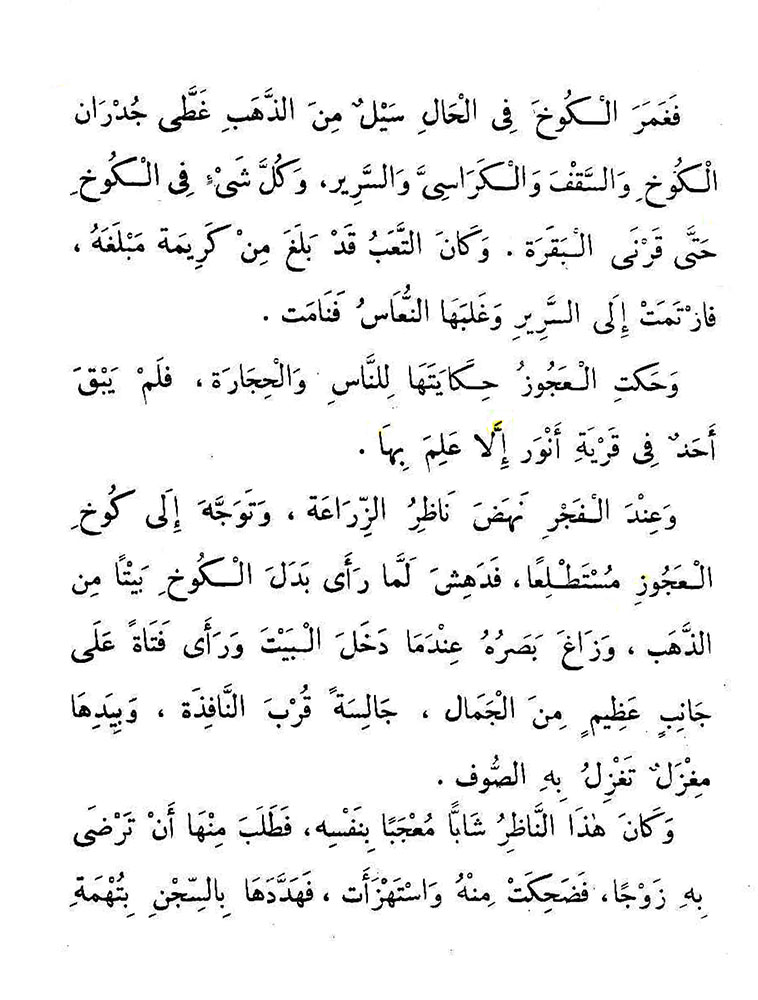 فَغَمَرَ الْكُوخَ فِى الْحَالِ سَيْلٌ مِنَ الذَّهَبِ غَطَّى جُدْرَان
الْكُوخِ وَالسَّقْفَ وَالْكَرَاسِىَّ وَالسَّرِير، وَكُلَّ شَىْءٍ فِى الْكُوخِ
حَتَّى قَرْنَى الْبَقَرَة . وَكَانَ التَّعَبُ قَدْ بَلَغَ مِنْ كَرِيمَة مَبْلَغَهُ ،
فارْتَمَتْ إِلَى السَّرِيرِ وَغَلَبَهَا النُّعَاسُ فَنَامَت .
وَحَكَتِ الْعَجُوزُ حِكَايَتَهَا لِلنَّاسِ وَالْحِجَارَة ، فَلَمْ يَبْقَ
أَحَدٌ فِى قَرْيَةِ أَنْوَر إِلَّا عَلِمَ بِهَا .
وَعِنْدَ الْفَجْرِ نَهَضَ نَاظِرُ الزِّرَاعَة ، وَتَوَجَّهَ إِلَى كُوخِ
الْعَجُوزِ مُسْتَطْلِعًا ، فَدَهِشَ لَمَّا رَأَى بَدَلَ الْكُوخِ بَيْتًا مِن
الذَّهَب ، وَزَاغَ بَصَرُهُ عِنْدَمَا دَخَلَ الْبَيْتَ وَرَأَى فَتَاةً عَلَى
جَانِبٍ عَظِيمٍ مِنَ الْجَمَال ، جَالِسَةً قُرْبَ النَّافِذَة ، وَبِيَدِهَا
مِغْزَلٌ تَغْزِلُ بِهِ الصُّوف .
وَكَانَ هٰذَا النَّاظِرُ شَابًّا مُعْجَبًا بِنَفْسِه، فَطَلَبَ مِنْهَا أَنْ تَرْضَى
بِهِ زَوْجًا، فَضَحِكَتْ مِنْهُ وَاسْتَهْزَأَت ، فَهَدَّدَهَا بِالسِّجْنِ بِتُهْمَةِ